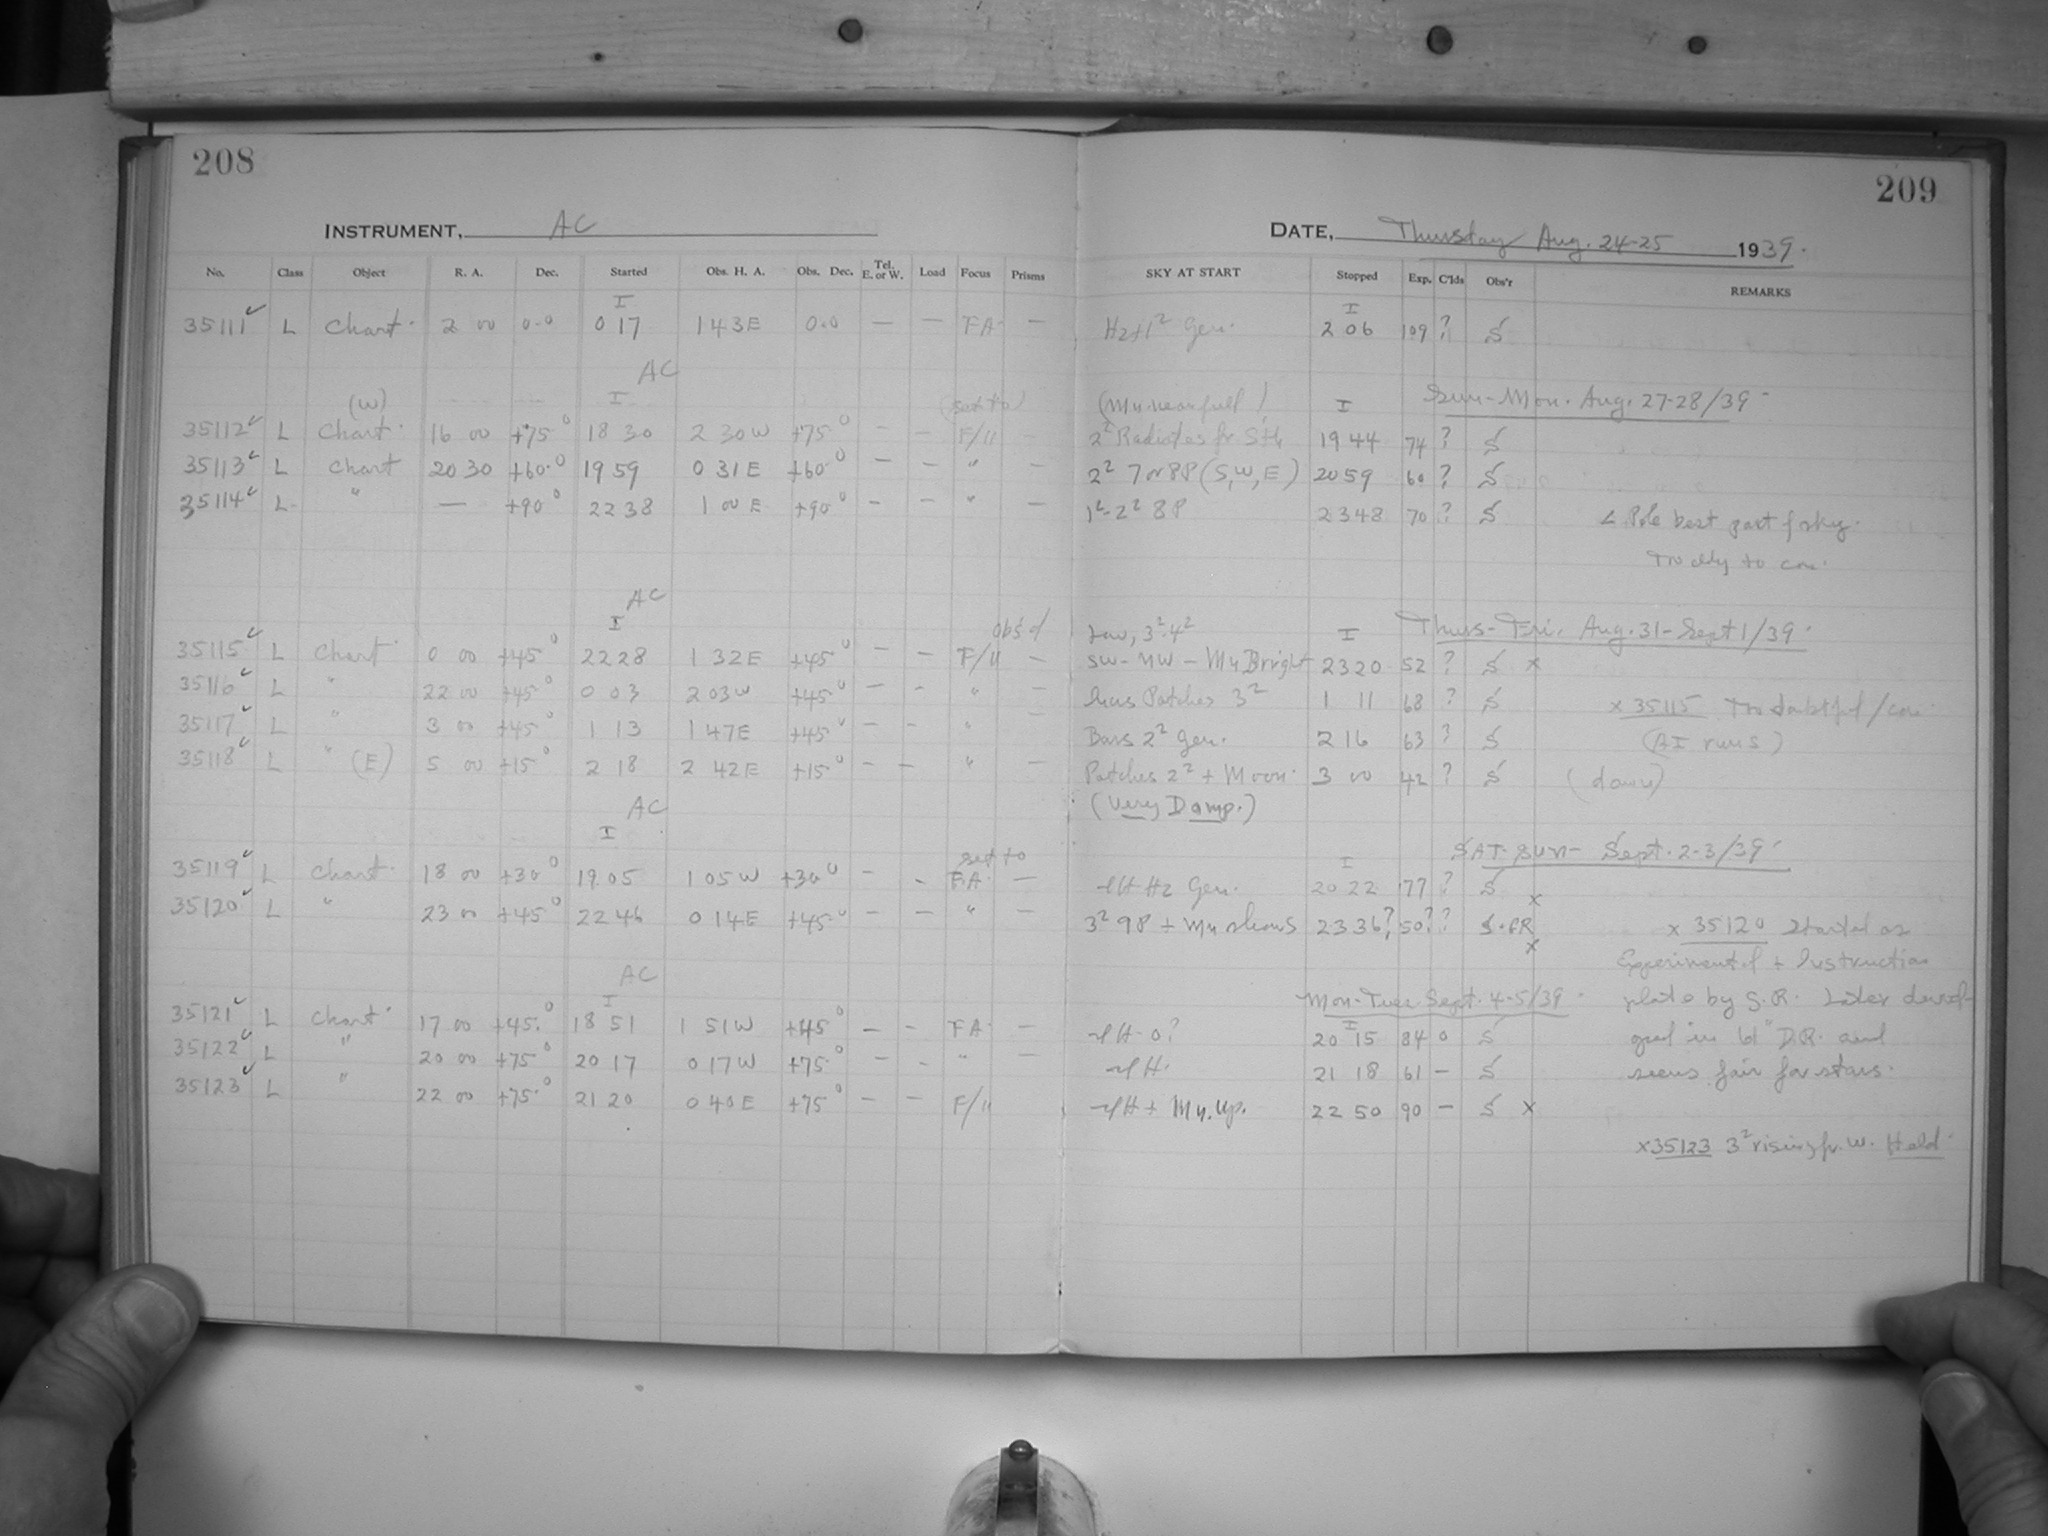 208
209
INSTRUMENT, AC
DATE, Thursday Aug. 24-25 1939.
No. Class Object R. A. Dec. Started Obs. H. A. Obs. Dec. Tel. E. or W. Load Focus Prisms SKY AT START Stopped Exp. C'lds Obs'r REMARKS
I I
35111 L Chart. 2 00 0.0 0 17 1 43E 0.0 — — FA. — Gen. 2 06 109 ? S
AC
(W) I (set to) (Mn. near full) I Sun-Mon. Aug. 27-28/39
35112 L Chart. 16 00 +75° 18 30 2 30W +75° — — F/11 — 2² 19 44 74 ? S
35113 L Chart 20 30 +60.0 19 59 0 31E +60° — — " — 2² 7 or 8P (S, W, E) 20 59 60 ? S
35114 L " — +90° 22 38 1 00E +90° — — " — 1²-2² 8P 23 48 70 ? S Pole best part of sky.
to
AC
I obs'd Low, 3²-4² I Thurs-Fri. Aug. 31-Sept 1/39
35115 L Chart 0 00 +45° 22 28 1 32E +45° — — F/11 — SW-NW - Mn Bright 23 20 52 ? S x
35116 L " 22 00 +45° 0 03 2 03W +45° — — " — Patches 3² 1 11 68 ? S x 35115
35117 L " 3 00 +45° 1 13 1 47E +45° — — " — Bars 2² Gen. 2 16 63 ? S (AI runs)
35118 L " (E) 5 00 +15° 2 18 2 42E +15° — — " — Patches 2² + Moon. 3 00 42 ? S
AC (Very Damp.)
I set to I SAT-Sun- Sept. 2-3/39
35119 L Chart. 18 00 +30° 19 05 1 05W +30° — — FA. — Gen. 20 22 77 ? S
35120 L " 23 00 +45° 22 46 0 14E +45° — — " — 3² 9P + Mn 23 36? 50? ? S.&R x
x 35120 started as
Experimental + Instruction
plate by S.R. Later devel-
AC Mon-Tues Sept. 4-5/39
I I
35121 L Chart. 17 00 +45° 18 51 1 51W +45° — — FA. — 20 15 84 0 S
oped in D.R. and
35122 L " 20 00 +75° 20 17 0 17W +75° — — " — 21 18 61 — S
seems fair for stars.
35123 L " 22 00 +75° 21 20 0 40E +75° — — F/11 + Mn. up. 22 50 90 — S x
x 35123 3² rising fr. W. Held